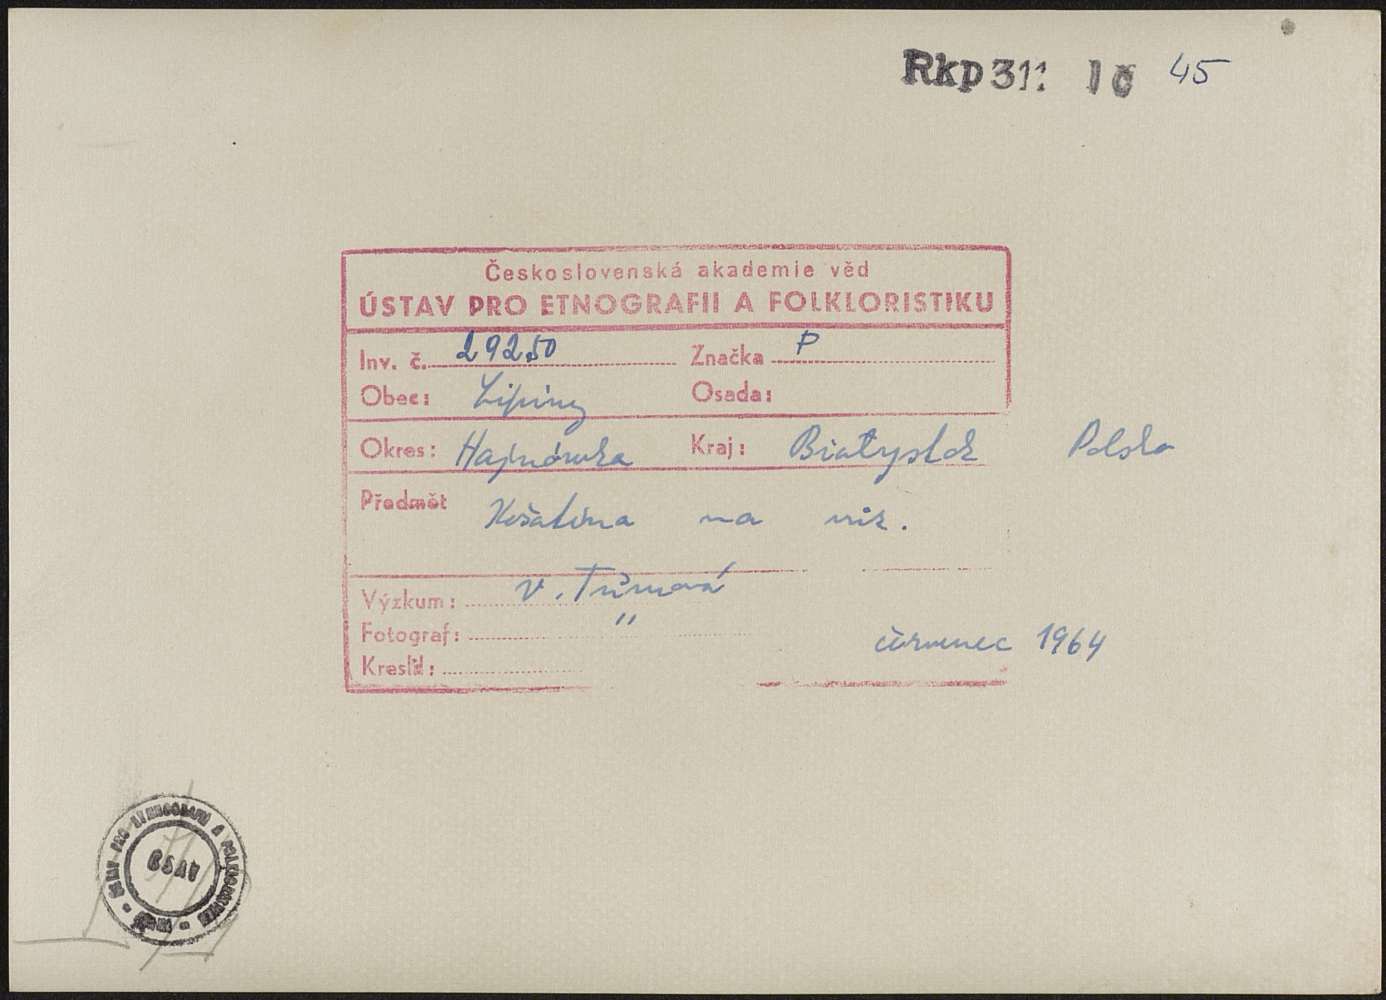 Rkp 311 IČ 45
Československá akademie věd
ÚSTAV PRO ETNOGRAFII A FOLKLORISTIKU
Inv. č. 29250 Značka P
Obec: Lipiny Osada:
Okres: Hajnówka Kraj: Białystok Polsko
Předmět Košatina na
Výzkum: V. Tůmová
Fotograf: "
červenec 1964
Kreslil:
ÚSTAV PRO ETNOGRAFII A FOLKLORISTIKU
ČSAV